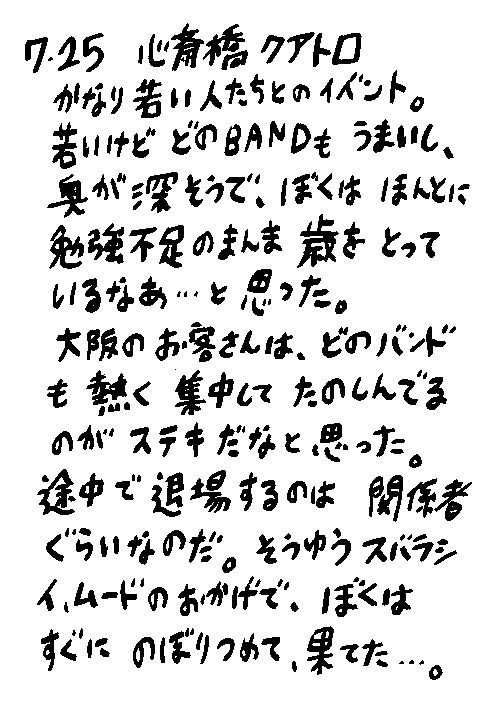 7.25 心斉橋クアトロ
かなり若い人たちとのイベント。
若いけど どのBANDも うまいし、
奥が深そうで、ぼくは ほんとに
勉強不足のまんま 歳を とって
いるなあ…と思った。
大阪のお客さんは、どのバンド
も 熱く 集中して たのしんでる
のが ステキだなと思った。
途中で退場するのは 関係者
ぐらいなのだ。そうゆうスバラシ
イ、ムードのおかげで、ぼくは
すぐに のぼりつめて、果てた…。